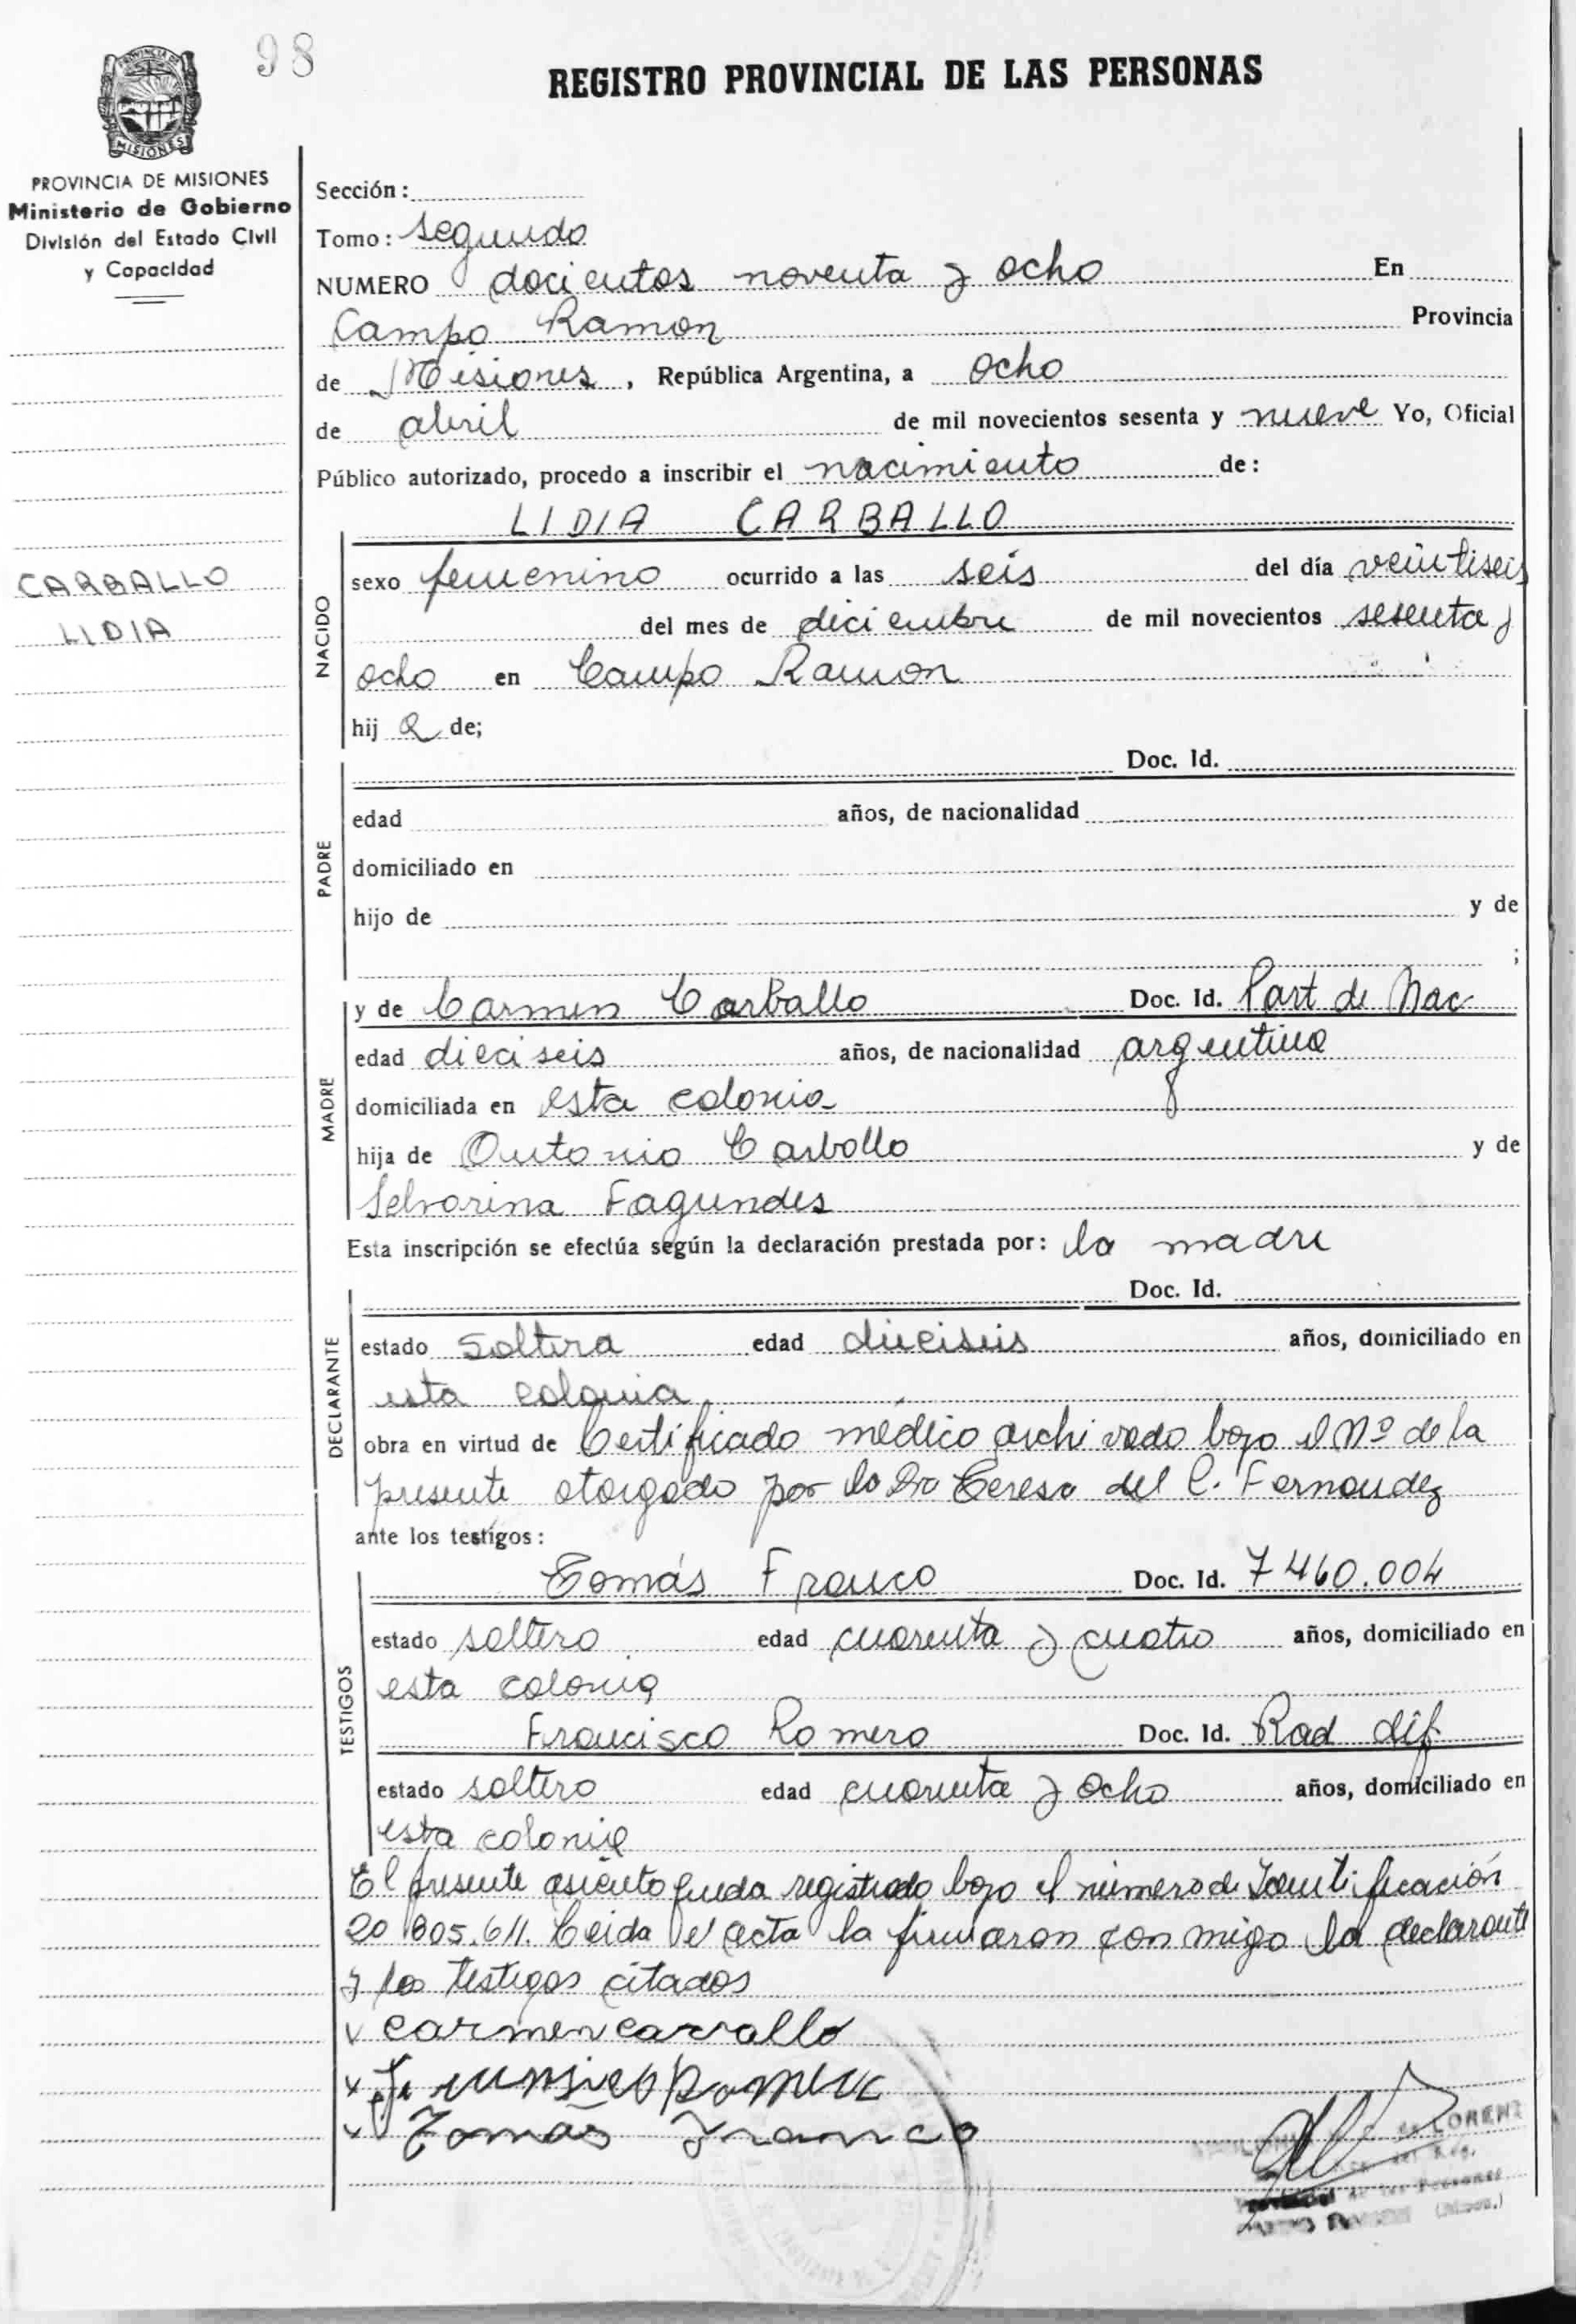 98
REGISTRO PROVINCIAL DE LAS PERSONAS
PROVINCIA DE MISIONES
Ministerio de Gobierno
División del Estado Civil
y Capacidad
CARBALLO
LIDIA
Sección:
Tomo: segundo
NUMERO docientos noventa y ocho En
Campo Ramon Provincia
de Misiones, República Argentina, a ocho
de abril de mil novecientos sesenta y nueve Yo, Oficial
Público autorizado, procedo a inscribir el nacimiento de:
LIDIA CARBALLO
NACIDO
sexo femenino ocurrido a las seis del día veintiseis
del mes de diciembre de mil novecientos sesenta y
ocho en Campo Ramon
hij a de;
PADRE
Doc. Id.
edad años, de nacionalidad
domiciliado en
hijo de y de
;
MADRE
y de Carmen Carballo Doc. Id. Part de Nac
edad dieciseis años, de nacionalidad argentina
domiciliada en esta colonia
hija de Antonio Carballo y de
Selvarina Fagundes
Esta inscripción se efectúa según la declaración prestada por: la madre
DECLARANTE
Doc. Id.
estado soltera edad dieciseis años, domiciliado en
esta colonia
obra en virtud de Certificado médico archivado bajo el Nº de la
presente otorgado por la Dra Teresa del C. Fernandez
ante los testigos:
TESTIGOS
Tomás Franco Doc. Id. 7460.004
estado soltero edad cuarenta y cuatro años, domiciliado en
esta colonia
Francisco Romero Doc. Id. Rad dif
estado soltero edad cuarenta y ocho años, domiciliado en
esta colonia
El presente asiento queda registrado bajo el número de Identificación
20 805.611. Leida el acta la firmaron con migo la declarante
y los testigos citados
carmen carvallo
Romero
Tomás Franco
LORENZ
del Reg.
Provincial de las Personas